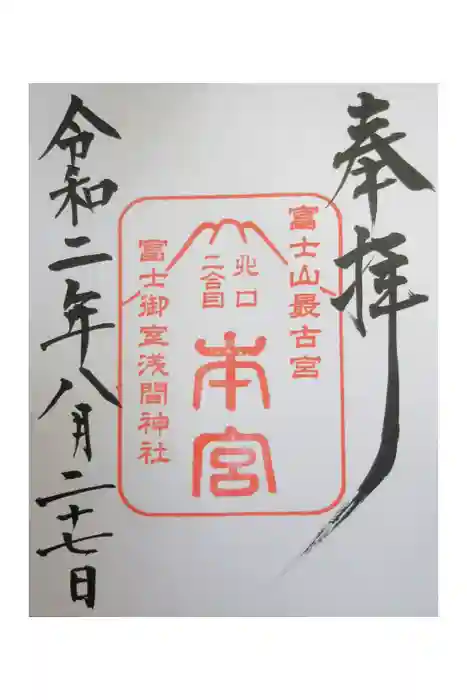 奉拝
富士山最古宮
北口
二合目
本宮
富士御室浅間神社
令和二年八月二十七日